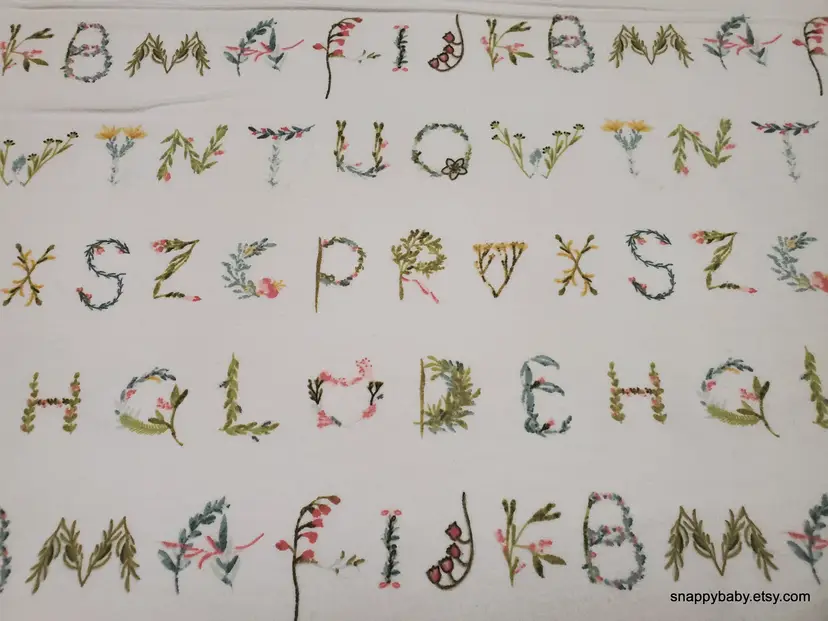 K B M A F I J K B M A F
W Y N T U Q W Y N T
X S Z C P R V X S Z C
H G L O D E H G L
B M A F I J K B M A
snappybaby.etsy.com